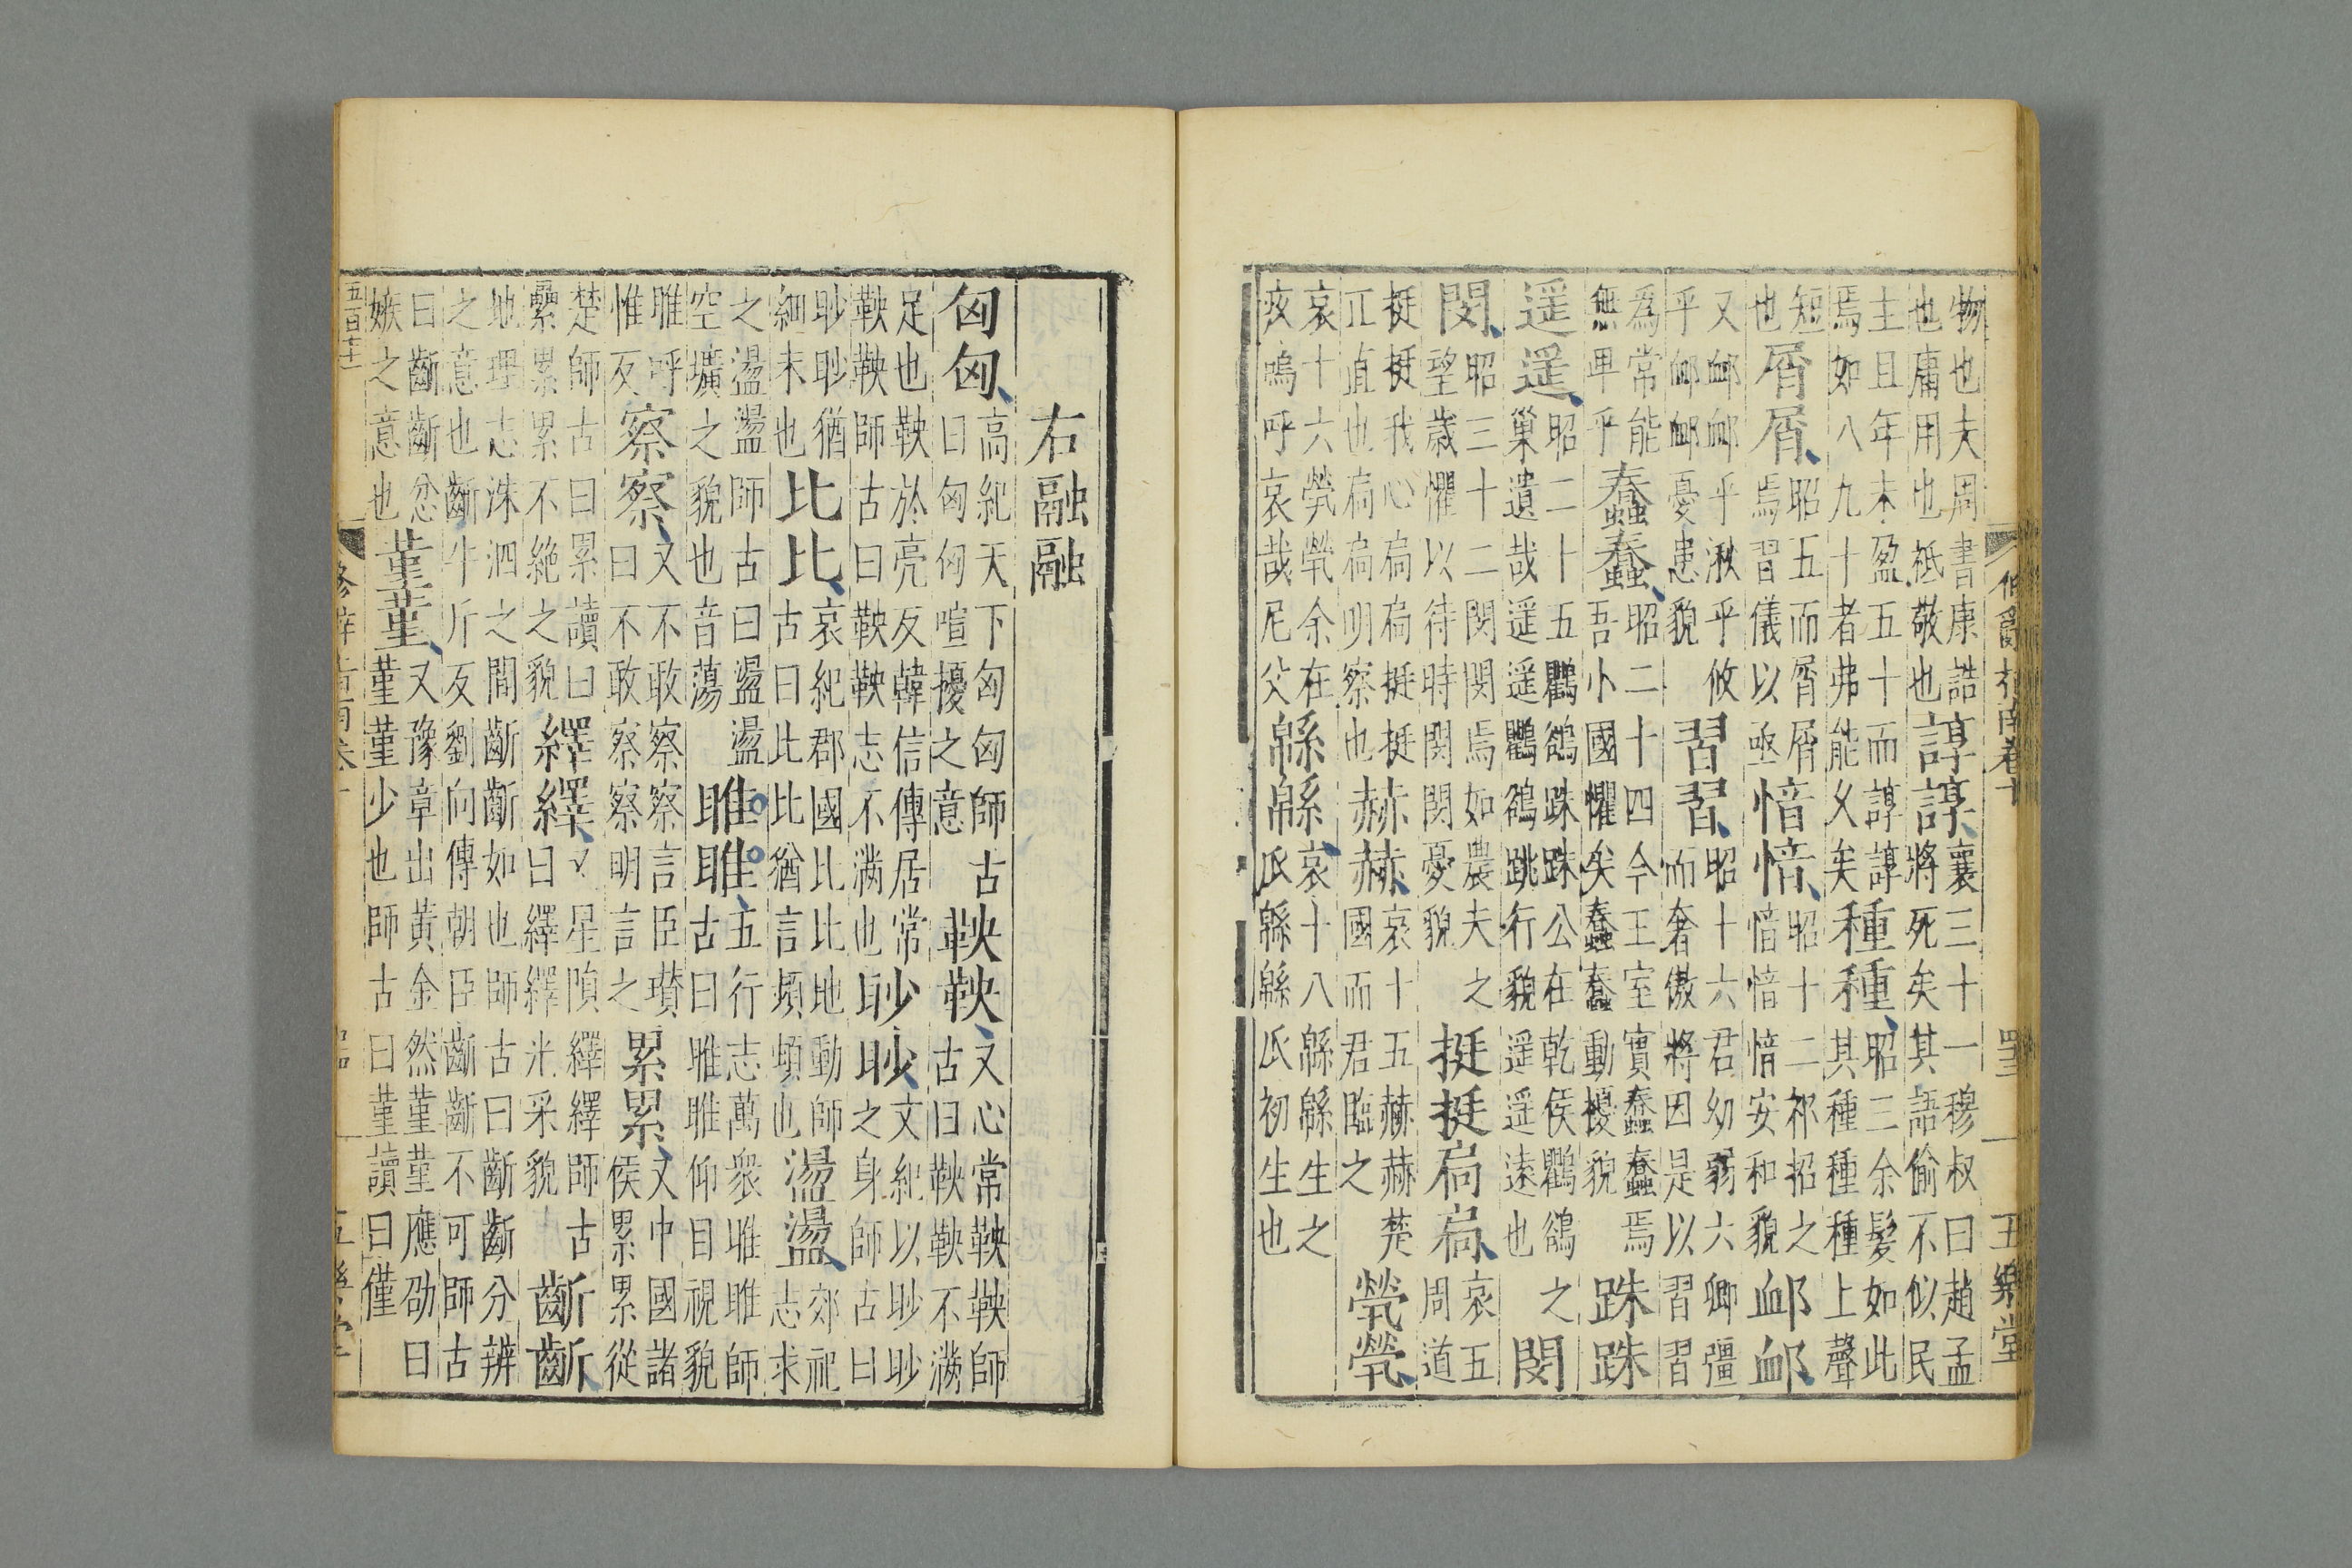 修辭指南卷十
五樂堂
物也夫周書康誥也庸用也祗敬也諄諄襄三十一穆叔曰趙孟將死矣其語偷不似民
主且年未盈五十而諄諄焉如八九十者弗能久矣種種昭三余髮如此其種種種上聲
短也屑屑昭五而屑屑焉習儀以亟愔愔昭十二祁招之愔愔愔安和貌卹卹
又卹卹乎湫乎攸乎卹卹憂患貌習習昭十六君幼弱六卿彊而奢傲將因是以習習
為常能無卑乎蠢蠢昭二十四今王室實蠢蠢焉吾小國懼矣蠢蠢動擾貌跦跦
遥遥昭二十五鸜鵒跦跦公在乾侯鸜鵒之巢遺哉遥遥鸜鵒跳行貌遥遥遠也閔
閔昭三十二閔閔焉如農夫之望歲懼以待時閔閔憂貌挺挺扃扃哀五周道
挺挺我心扃扃挺挺正直也扃扃明察也赫赫哀十五赫赫楚國而君臨之煢煢
哀十六煢煢余在疚嗚呼哀哉尼父緜緜哀十八緜緜生之瓜緜緜瓜初生也
右融融
匈匈高紀天下匈匈師古曰匈匈喧擾之意鞅鞅又心常鞅鞅師古曰鞅鞅不滿
足也鞅於亮反韓信傳居常鞅鞅師古曰鞅鞅志不滿也眇眇文紀以眇眇之身師古曰
眇眇猶細末也比比哀紀郡國比比地動師古曰比比猶言頻頻也盪盪郊祀志求
之盪盪師古曰盪盪空壙之貌也音蕩睢睢五行志萬衆睢睢師古曰睢睢仰目視貌
睢呼惟反察察又不敢察察言臣瓚曰不敢察察明言之累累又中國諸侯累累從
楚師古曰累讀曰纍累累不絶之貌繹繹又星隕繹繹師古曰繹繹光采貌齗齗
地理志洙泗之間齗齗如也師古曰齗齗分辨之意也齗牛斤反劉向傳朝臣齗齗不可師古
曰齗齗忿嫉之意也菫菫又豫章出黄金然菫菫應劭曰菫菫少也師古曰菫讀曰僅